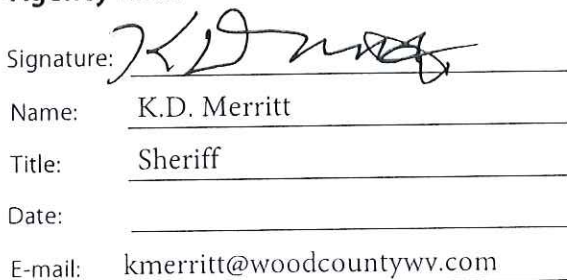 Signature: K D Merritt
Name: K.D. Merritt
Title: Sheriff
Date:
E-mail: kmerritt@woodcountywv.com